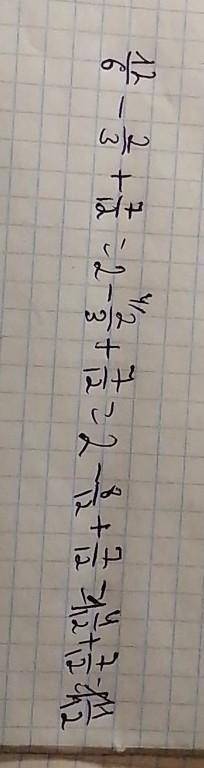 12/6 - 2/3 + 7/12 = 2 - 2/3 4/ + 7/12 = 2 - 8/12 + 7/12 = 1 4/12 + 7/12 = 1 11/12